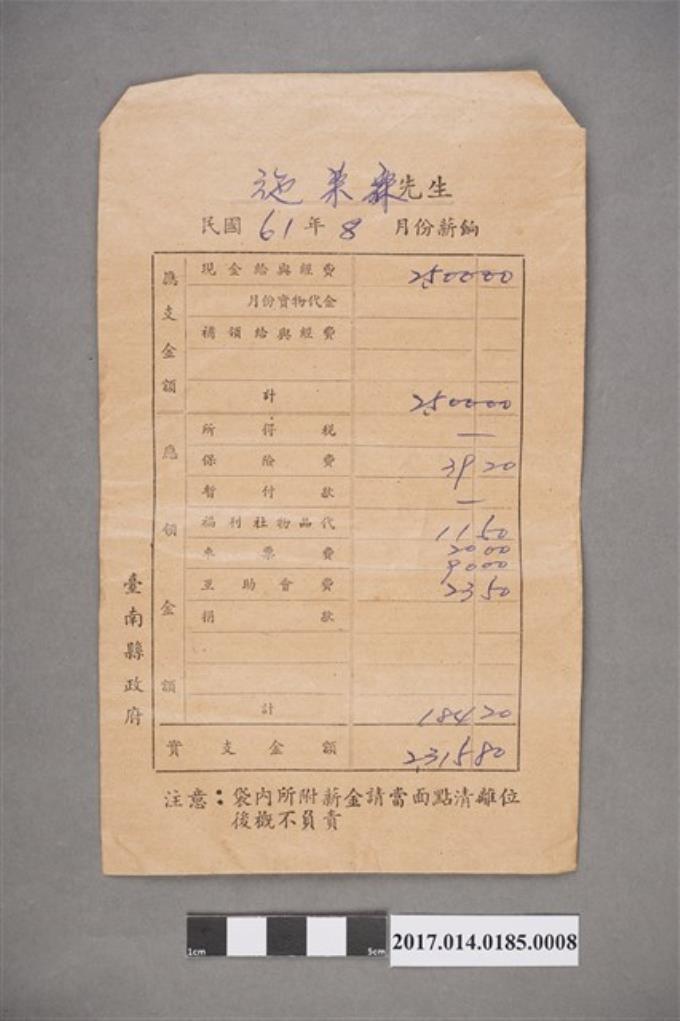 施 先生
民國 61 年 8 月份薪餉
應支金額
現金給與經費 2,500 00
月份實物代金
補領給與經費
計 2,500 00
應領金額
所得稅 —
保險費 39 20
暫付款 —
福利社物品代 11 50
車票費 20 00
90 00
互助會費 23 50
捐款
計 184 20
實支金額 2,315 80
臺南縣政府
注意：袋內所附薪金請當面點清離位
後概不負責
1cm 5cm
2017.014.0185.0008